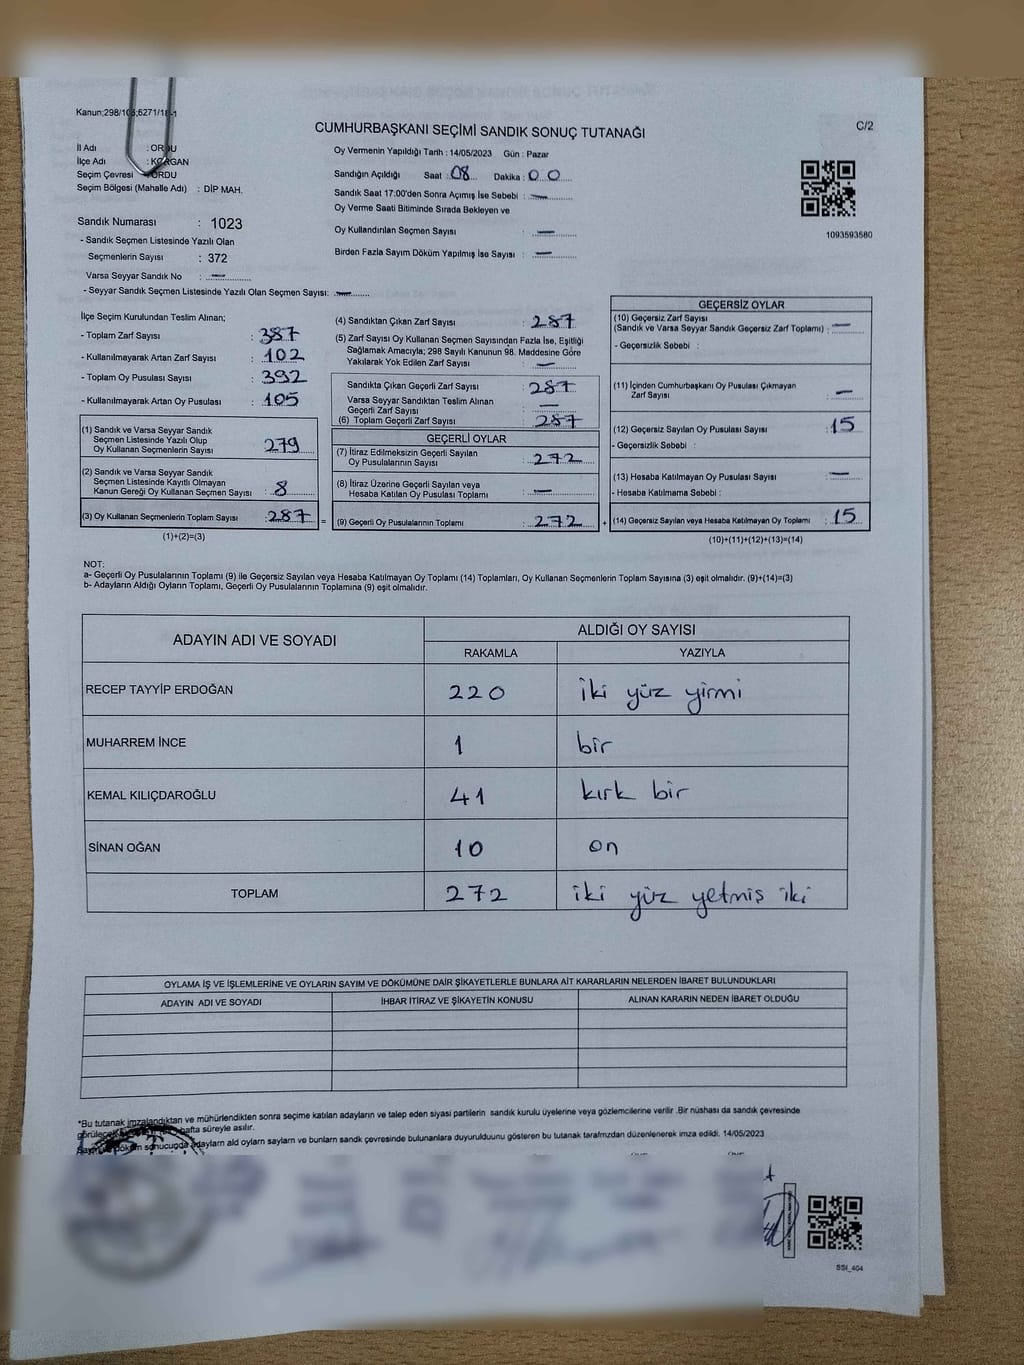 Kanun;298/105;6271/18-1
CUMHURBAŞKANI SEÇİMİ SANDIK SONUÇ TUTANAĞI
C/2
İl Adı : ORDU
İlçe Adı : KORGAN
Seçim Çevresi : ORDU
Seçim Bölgesi (Mahalle Adı) : DİP MAH.
Oy Vermenin Yapıldığı Tarih : 14/05/2023 Gün : Pazar
Sandığın Açıldığı Saat : 08 Dakika : 00
Sandık Saat 17:00'den Sonra Açımış İse Sebebi : —
Oy Verme Saati Bitiminde Sırada Bekleyen ve
Oy Kullandırılan Seçmen Sayısı : —
Birden Fazla Sayım Döküm Yapılmış İse Sayısı : —
1093593580
Sandık Numarası : 1023
- Sandık Seçmen Listesinde Yazılı Olan
Seçmenlerin Sayısı : 372
Varsa Seyyar Sandık No : —
- Seyyar Sandık Seçmen Listesinde Yazılı Olan Seçmen Sayısı: —
İlçe Seçim Kurulundan Teslim Alınan;
- Toplam Zarf Sayısı : 387
- Kullanılmayarak Artan Zarf Sayısı : 102
- Toplam Oy Pusulası Sayısı : 392
- Kullanılmayarak Artan Oy Pusulası : 105
(1) Sandık ve Varsa Seyyar Sandık
Seçmen Listesinde Yazılı Olup
Oy Kullanan Seçmenlerin Sayısı : 279
(2) Sandık ve Varsa Seyyar Sandık
Seçmen Listesinde Kayıtlı Olmayan
Kanun Gereği Oy Kullanan Seçmen Sayısı : 8
(3) Oy Kullanan Seçmenlerin Toplam Sayısı : 287 =
(1)+(2)=(3)
(4) Sandıktan Çıkan Zarf Sayısı : 287
(5) Zarf Sayısı Oy Kullanan Seçmen Sayısından Fazla İse, Eşitliği
Sağlamak Amacıyla; 298 Sayılı Kanunun 98. Maddesine Göre
Yakılarak Yok Edilen Zarf Sayısı : —
Sandıkta Çıkan Geçerli Zarf Sayısı : 287
Varsa Seyyar Sandıktan Teslim Alınan
Geçerli Zarf Sayısı : —
(6) Toplam Geçerli Zarf Sayısı : 287
GEÇERLİ OYLAR
(7) İtiraz Edilmeksizin Geçerli Sayılan
Oy Pusulalarının Sayısı : 272
(8) İtiraz Üzerine Geçerli Sayılan veya
Hesaba Katılan Oy Pusulası Toplamı : —
(9) Geçerli Oy Pusulalarının Toplamı : 272 +
GEÇERSİZ OYLAR
(10) Geçersiz Zarf Sayısı
(Sandık ve Varsa Seyyar Sandık Geçersiz Zarf Toplamı) : —
- Geçersizlik Sebebi :
(11) İçinden Cumhurbaşkanı Oy Pusulası Çıkmayan
Zarf Sayısı : —
(12) Geçersiz Sayılan Oy Pusulası Sayısı : 15
- Geçersizlik Sebebi :
(13) Hesaba Katılmayan Oy Pusulası Sayısı : —
- Hesaba Katılmama Sebebi :
(14) Geçersiz Sayılan veya Hesaba Katılmayan Oy Toplamı : 15
(10)+(11)+(12)+(13)=(14)
NOT:
a- Geçerli Oy Pusulalarının Toplamı (9) ile Geçersiz Sayılan veya Hesaba Katılmayan Oy Toplamı (14) Toplamları, Oy Kullanan Seçmenlerin Toplam Sayısına (3) eşit olmalıdır. (9)+(14)=(3)
b- Adayların Aldığı Oyların Toplamı, Geçerli Oy Pusulalarının Toplamına (9) eşit olmalıdır.
ADAYIN ADI VE SOYADI
ALDIĞI OY SAYISI
RAKAMLA YAZIYLA
RECEP TAYYİP ERDOĞAN 220 iki yüz yirmi
MUHARREM İNCE 1 bir
KEMAL KILIÇDAROĞLU 41 kırk bir
SİNAN OĞAN 10 on
TOPLAM 272 iki yüz yetmiş iki
OYLAMA İŞ VE İŞLEMLERİNE VE OYLARIN SAYIM VE DÖKÜMÜNE DAİR ŞİKAYETLERLE BUNLARA AİT KARARLARIN NELERDEN İBARET BULUNDUKLARI
ADAYIN ADI VE SOYADI İHBAR İTİRAZ VE ŞİKAYETİN KONUSU ALINAN KARARIN NEDEN İBARET OLDUĞU
*Bu tutanak imzalandıktan ve mühürlendikten sonra seçime katılan adayların ve talep eden siyasi partilerin sandık kurulu üyelerine veya gözlemcilerine verilir .Bir nüshası da sandık çevresinde
hafta süreyle asılır.
sonucuçda adayların ald oyların sayların ve bunların sandk çevresinde bulunanlara duyurulduunu gösteren bu tutanak tarafmzdan düzenlenerek imza edildi. 14/05/2023
SSI_404